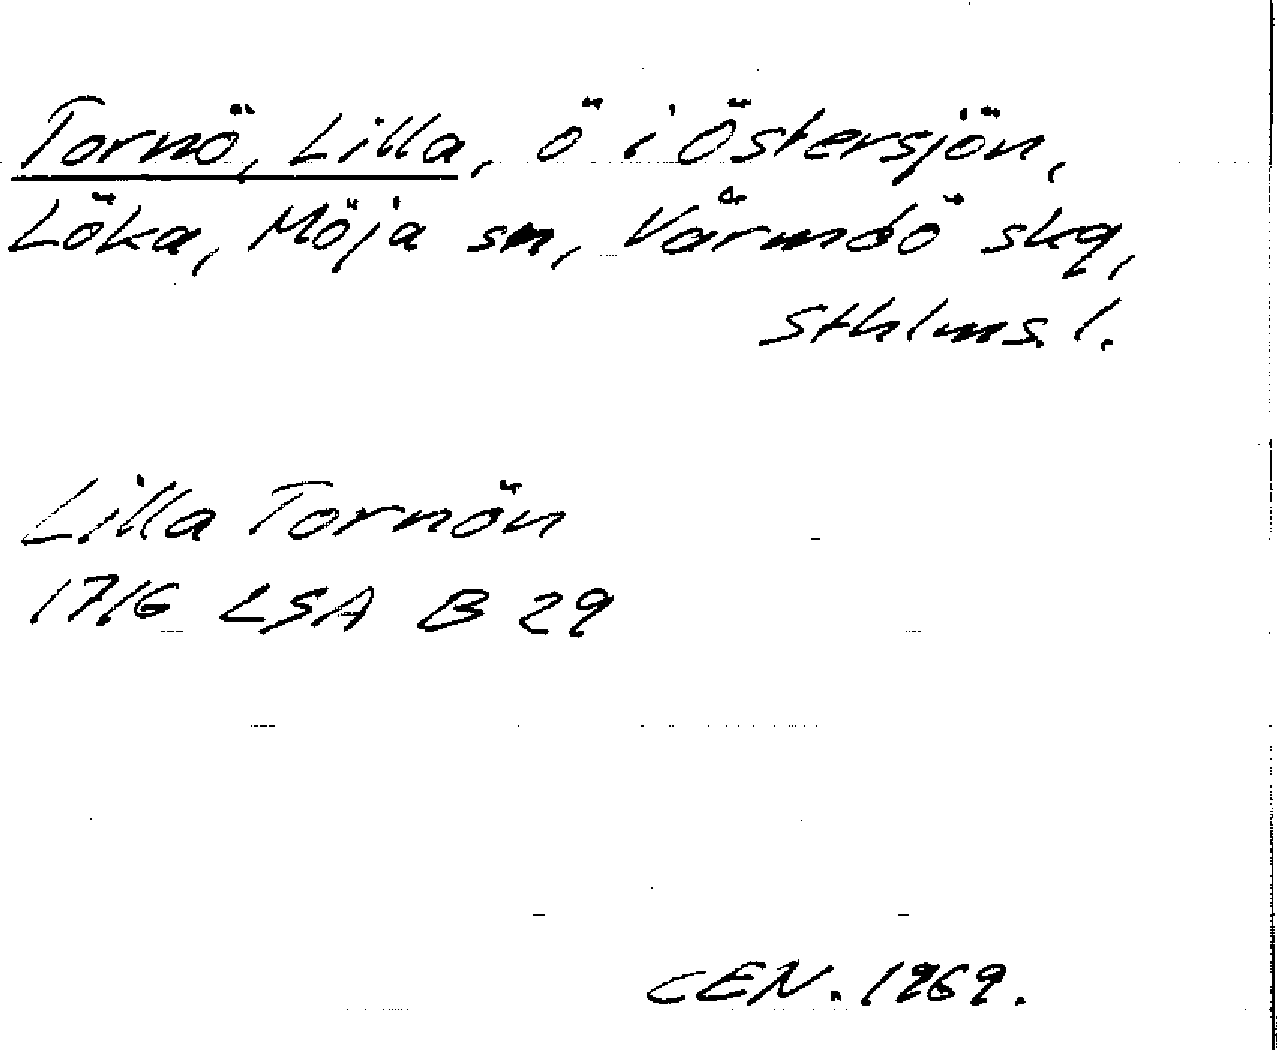 Tornö, Lilla, ö i Östersjön,
Löka, Möja sn, Värmdö skg,
Sthlms. l.
Lilla Tornön
1716 LSA B 29
CEN. 1969.